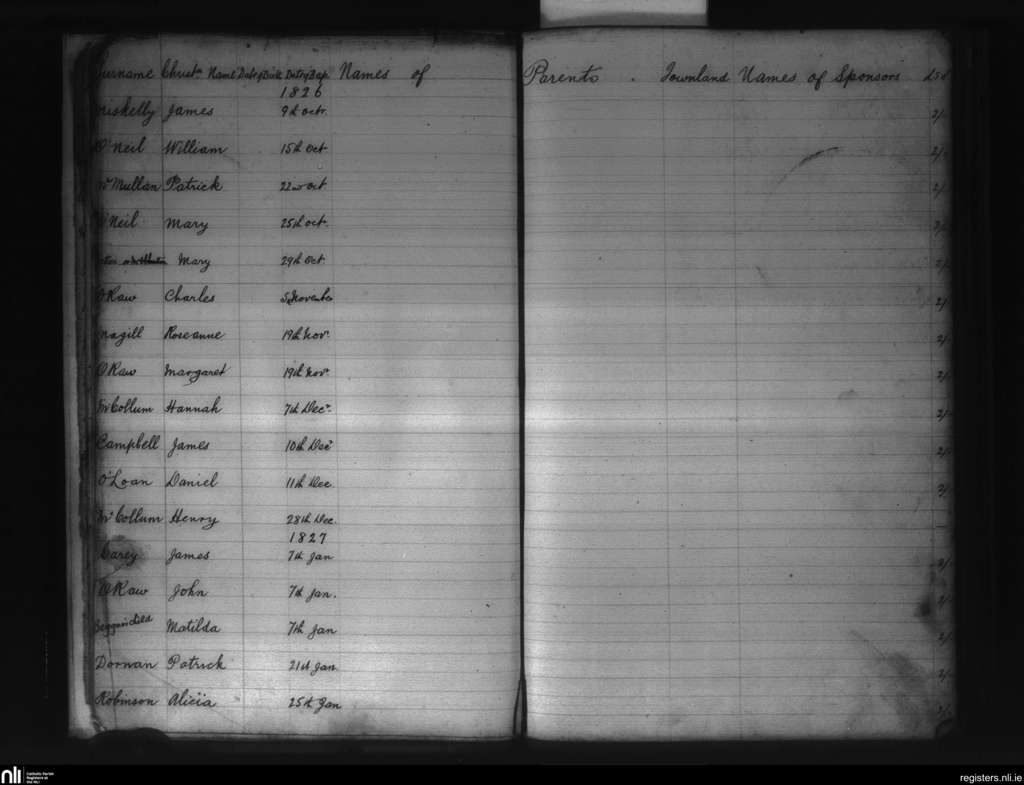 Surname Christn Name Date of Birth Date of Bap. Names of Parents. Townland Names of Sponsors £ s d
1826
James 9th Octr. 2/-
O'Neil William 15th Oct 2/-
McMullan Patrick 22nd Oct 2/-
O'Neil Mary 25th Oct. 2/-
Mary 29th Oct 2/-
O'Raw Charles 5 November 2/-
Magill Roseanne 19th Novr. 2/-
O'Raw Margaret 19th Novr. 2/-
McCollum Hannah 7th Decr. 2/-
Campbell James 10th Decr 2/-
O'Loan Daniel 11th Dec. 2/-
McCollum Henry 28th Dec. -
1827
Carey James 7th Jan 2/-
O'Raw John 7th Jan. 2/-
Matilda 7th Jan 2/-
Dornan Patrick 21st Jan 2/-
Robinson Alicia 25th Jan 2/-
nli Catholic Parish Registers at the NLI
registers.nli.ie